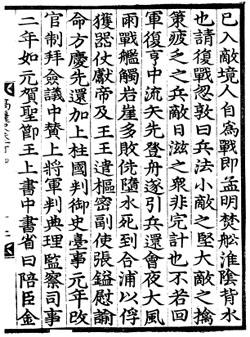 已入敵境人自為戰即孟明焚船淮陰背水
也請復戰忽敦曰兵法小敵之堅大敵之擒
策疲乏之兵敵日滋之衆非完計也不若回
軍復亨中流矢先登舟遂引兵還會夜大風
雨戰艦觸岩崖多敗侁墮水死到合浦以俘
獲器仗獻帝及王王遣樞密副使張鎰慰諭
命方慶先還加上柱國判御史臺事元年改
官制拜僉議中贊上將軍判典理監察司事
二年如元賀聖節王上書中書省曰陪臣金